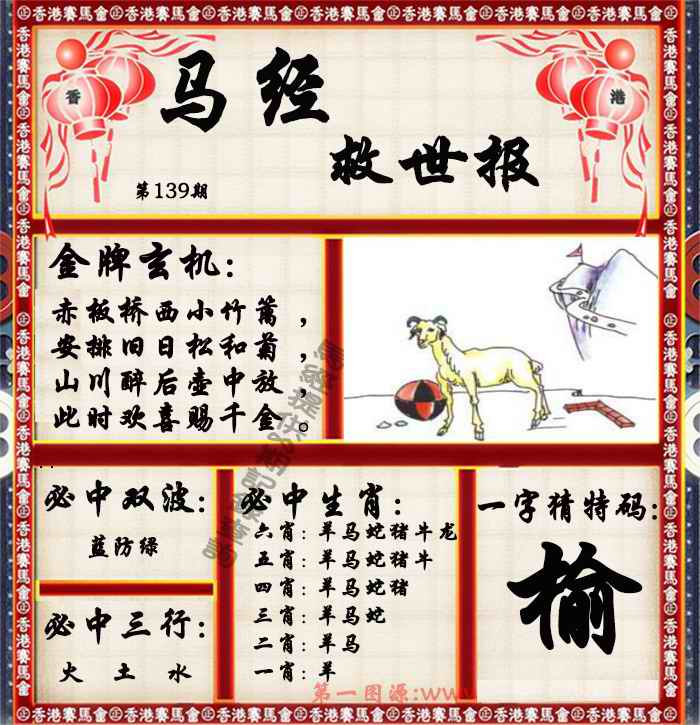 香港賽馬會
香 港
马经
救世报
第139期
金牌玄机：
赤板桥西小竹篱，
安排旧日松和菊，
山川醉后壶中放，
此时欢喜赐千金。
必中双波：
蓝防绿
必中三行：
火 土 水
必中生肖：
六肖：羊马蛇猪牛龙
五肖：羊马蛇猪牛
四肖：羊马蛇猪
三肖：羊马蛇
二肖：羊马
一肖：羊
一字猜特码：
榆
第一图源:www